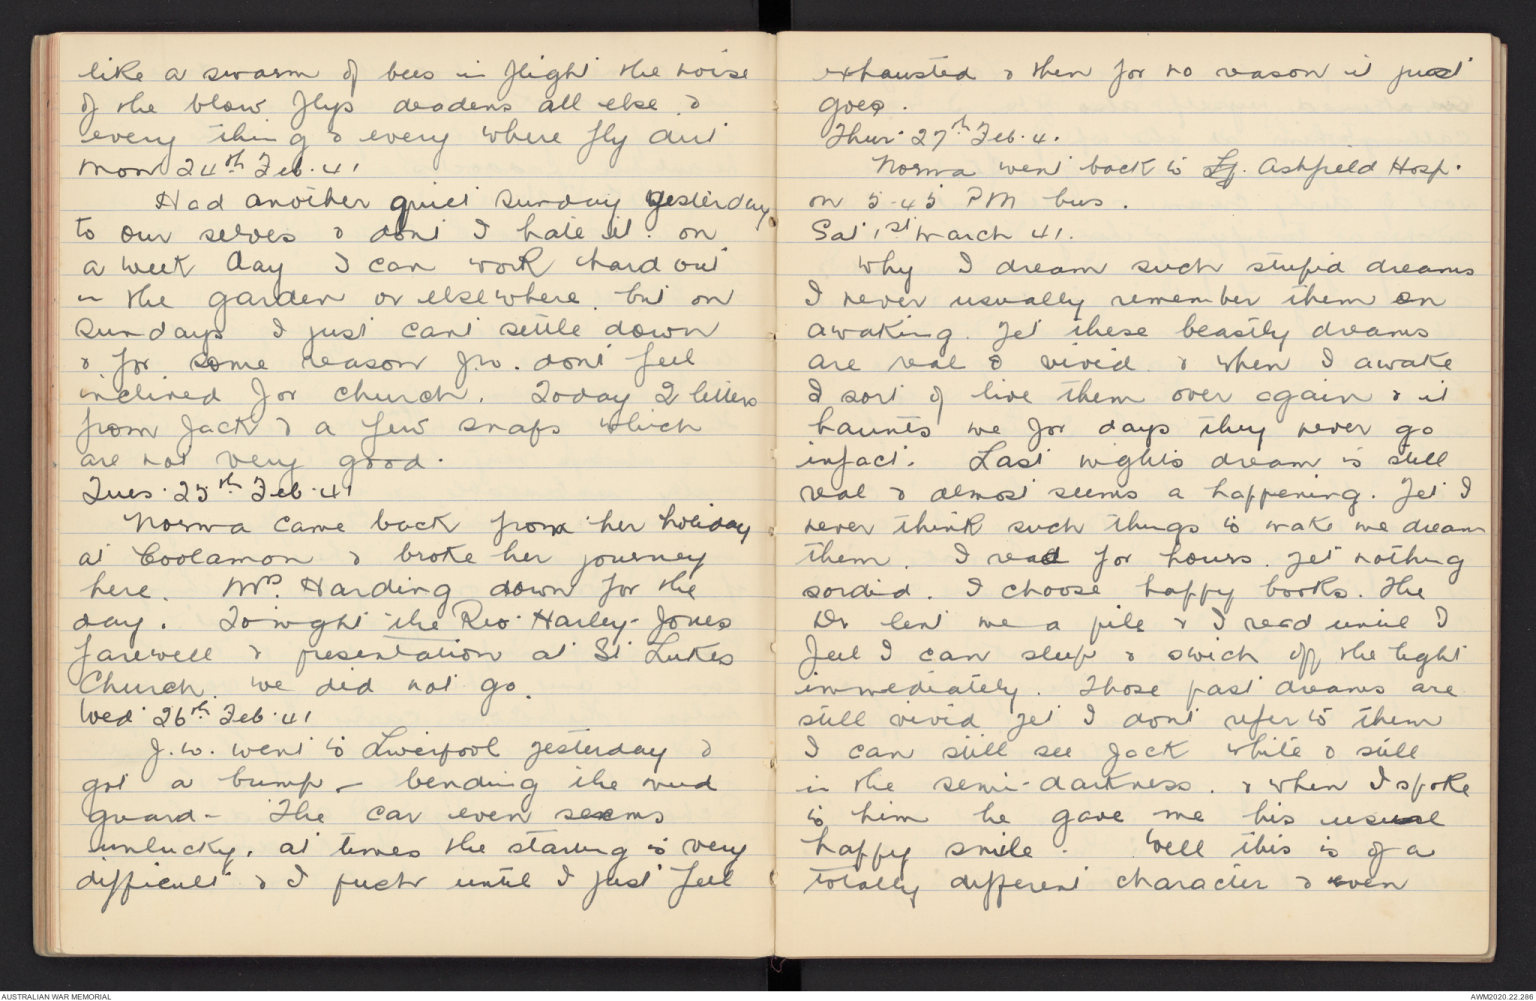 like a swarm of bees in flight the noise
of the blow flys deadens all else &
every thing & every where fly dirt
Mon 24th Feb. 41
Had another quiet Sunday yesterday
to our selves & dont I hate it. on
a week day I can work hard out
in the garden or elsewhere. but on
Sundays I just cant settle down
& for some reason J.W. dont feel
inclined for church. Today 2 letters
from Jack & a few snaps which
are not very good.
Tues. 25th Feb. 41
Norma came back from her holiday
at Coolamon & broke her journey
here. Mrs. Harding down for the
day. Tonight the Rev. Harley-Jones
farewell & presentation at St Lukes
Church. we did not go.
Wed 26th Feb. 41
J.W. went to Liverpool yesterday &
got a bump - bending the mud
guard - The car even seems
unlucky. at times the staring is very
difficult & I push until I just feel
exhausted & then for no reason it just
goes.
Thur 27th Feb. 4.
Norma went back to Ashfield Hosp.
on 5-45 PM bus.
Sat 1st March 41.
Why I dream such stupid dreams
I never usually remember them on
awaking. Yet these beastly dreams
are real & vivid. & when I awake
I sort of live them over again & it
haunts me for days they never go
infact. Last nights dream is still
real & almost seems a happening. Yet I
never think such things to make me dream
them. I read for hours. Yet nothing
sordid. I choose happy books. The
Dr lent me a pile & I read until I
feel I can sleep & swich off the light
immediately. Those past dreams are
still vivid yet I dont refer to them
I can still see Jack white & still
in the semi-darkness. & when I spoke
to him he gave me his usual
happy smile. Well this is of a
totally different character & even
AUSTRALIAN WAR MEMORIAL
AWM2020.22.286